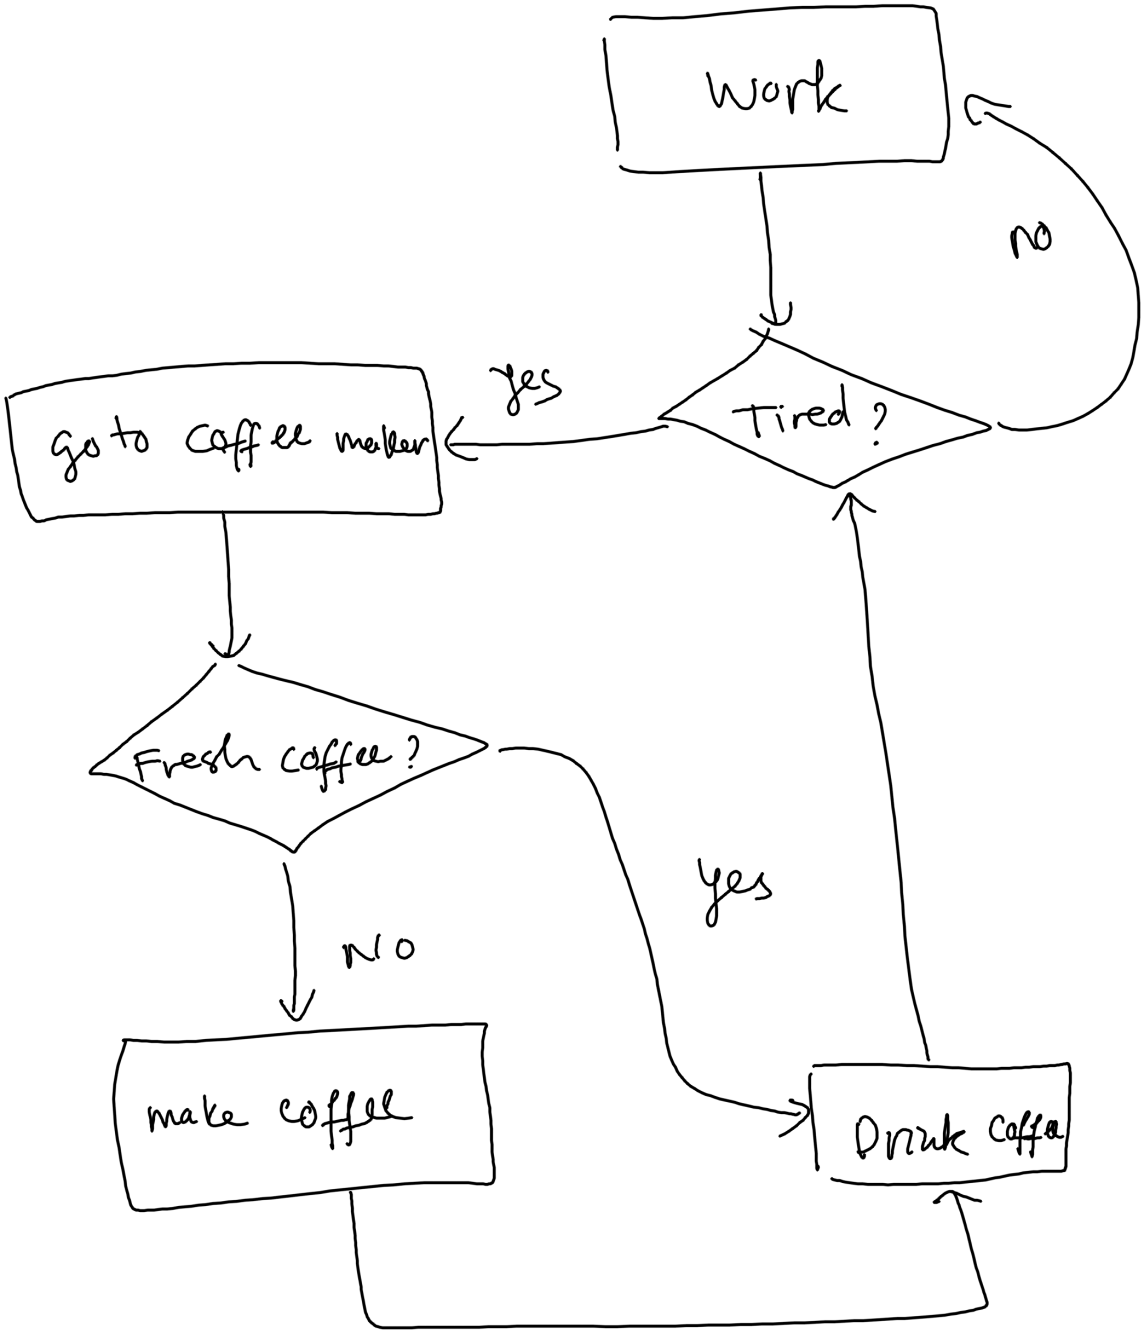 Work
no
yes
Tired?
go to coffee maker
Fresh coffee?
yes
NO
make coffee
Drink Coffee